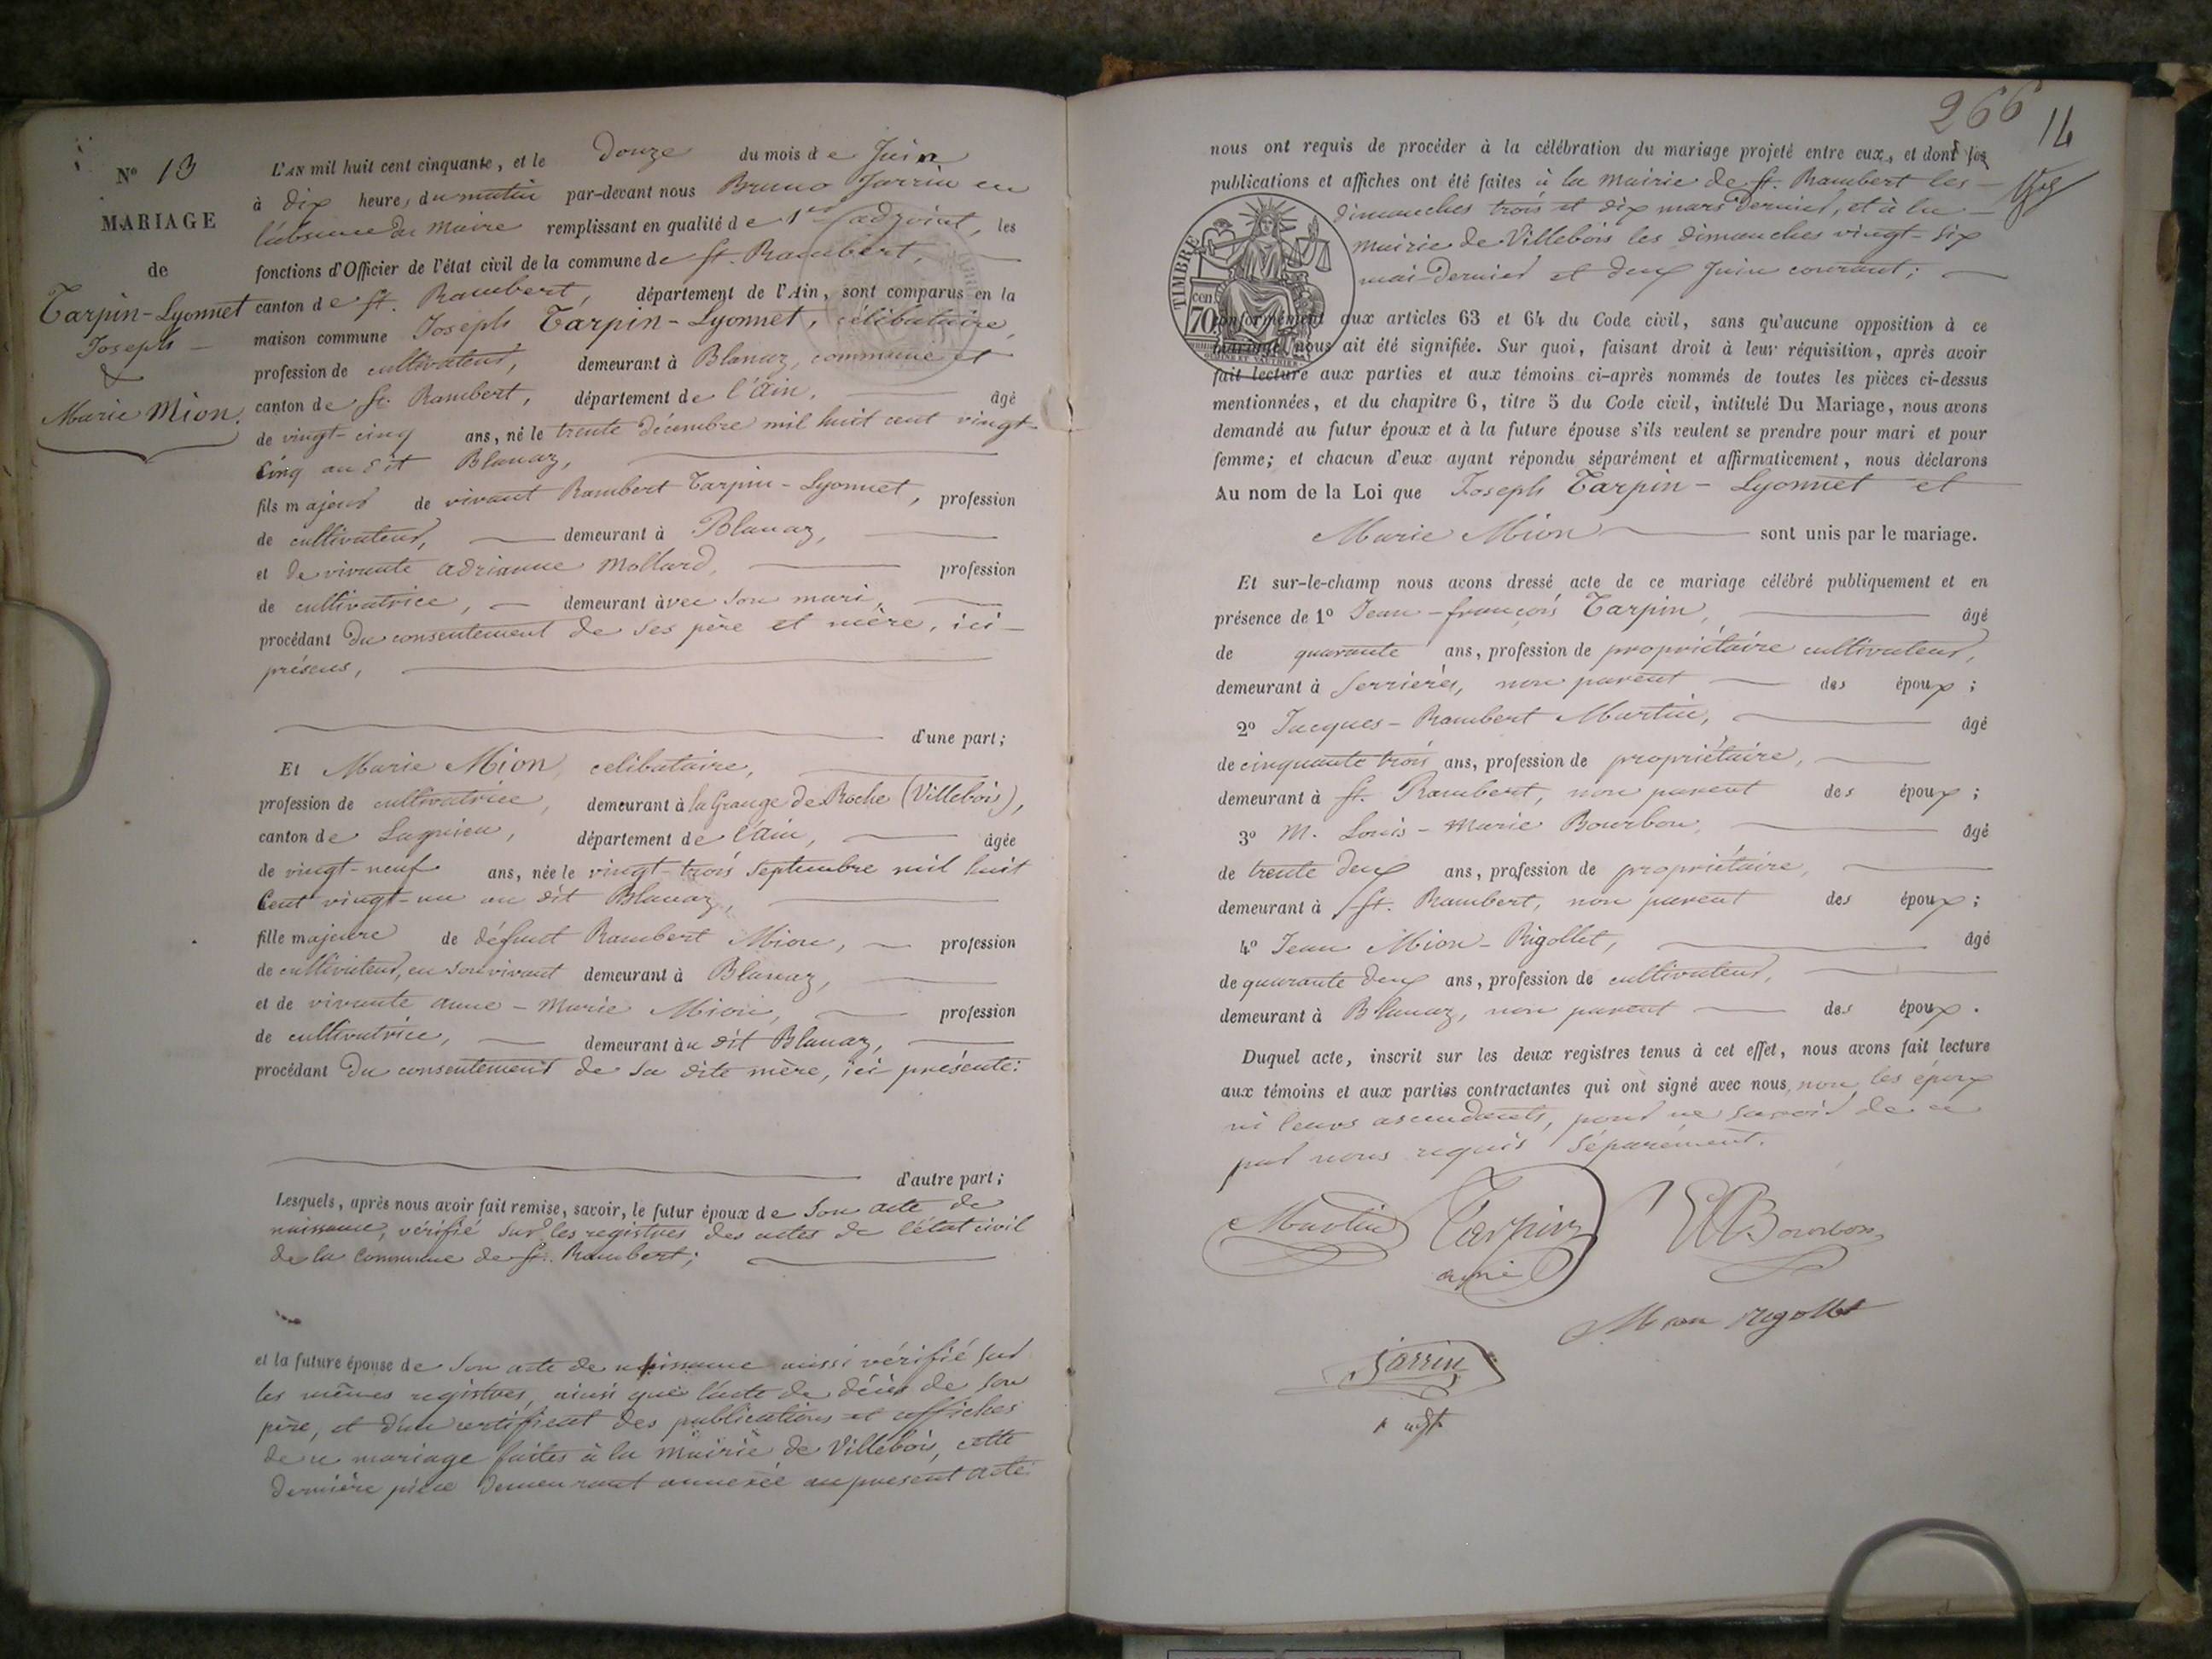 N° 13
MARIAGE
de
Tarpin-Lyonnet
Joseph
&
Marie Mion.
L'AN mil huit cent cinquante, et le Douze du mois de Juin
à dix heures du matin par-devant nous Bruno Jarrin en
l'absence du Maire remplissant en qualité de 1er adjoint, les
fonctions d'Officier de l'état civil de la commune de St. Rambert,
canton de St. Rambert, département de l'Ain, sont comparus en la
maison commune Joseph Tarpin-Lyonnet, célibataire,
profession de cultivateur, demeurant à Blanaz, commune et
canton de St. Rambert, département de l'Ain, âgé
de vingt-cinq ans, né le trente décembre mil huit cent vingt-
cinq au dit Blanaz,
fils majeur de vivant Rambert Tarpin-Lyonnet, profession
de cultivateur, demeurant à Blanaz,
et de vivante adrianne Mollard, profession
de cultivatrice, demeurant avec son mari,
procédant du consentement de ses père et mère, ici
présens,
d'une part;
Et Marie Mion, celibataire,
profession de cultivatrice, demeurant à la Grange de Roche (Villebois),
canton de Lagnieu, département de l'Ain, âgée
de vingt-neuf ans, née le vingt-trois septembre mil huit
Cent vingt-un au dit Blanaz,
fille majeure de défunt Rambert Mion, profession
de cultivateur, en son vivant demeurant à Blanaz,
et de vivante anne-Marie Mion, profession
de cultivatrice, demeurant au dit Blanaz,
procédant du consentement de sa dite mère, ici présente:
d'autre part;
Lesquels, après nous avoir fait remise, savoir, le futur époux de son acte de
naissance, vérifié sur les registres des actes de l'état civil
de la commune de St. Rambert;
et la future épouse de son acte de naissance aussi vérifié sur
les mêmes registres, ainsi que l'acte de décès de son
père, et d'un certificat des publications et affiches
de ce mariage faites à la mairie de Villebois, cette
dernière pièce demeurant annexée au present acte.
266
14
nous ont requis de procéder à la célébration du mariage projeté entre eux, et dont les
publications et affiches ont été faites à la mairie de St. Rambert les
dimanches trois et dix mars dernier, et à la
mairie de Villebois les dimanches vingt-six
mai dernier et deux Juin courant;
TIMBRE
70 cen.
conformément aux articles 63 et 64 du Code civil, sans qu'aucune opposition à ce
mariage nous ait été signifiée. Sur quoi, faisant droit à leur réquisition, après avoir
fait lecture aux parties et aux témoins ci-après nommés de toutes les pièces ci-dessus
mentionnées, et du chapitre 6, titre 5 du Code civil, intitulé Du Mariage, nous avons
demandé au futur époux et à la future épouse s'ils veulent se prendre pour mari et pour
femme; et chacun d'eux ayant répondu séparément et affirmativement, nous déclarons
Au nom de la Loi que Joseph Tarpin-Lyonnet et
Marie Mion sont unis par le mariage.
Et sur-le-champ nous avons dressé acte de ce mariage célébré publiquement et en
présence de 1° Jean-françois Tarpin, âgé
de quarante ans, profession de propriétaire cultivateur,
demeurant à Serrières, non parent des époux;
2° Jacques-Rambert Martin, âgé
de cinquante trois ans, profession de propriétaire,
demeurant à St. Rambert, non parent des époux;
3° M. Louis-Marie Bourbon, âgé
de trente deux ans, profession de propriétaire,
demeurant à St. Rambert, non parent des époux;
4° Jean Mion-Rigollet, âgé
de quarante deux ans, profession de cultivateur,
demeurant à Blanaz, non parent des époux.
Duquel acte, inscrit sur les deux registres tenus à cet effet, nous avons fait lecture
aux témoins et aux parties contractantes qui ont signé avec nous, non les époux
ni leurs ascendants, pour ne savoir de ce
par nous requis séparément.
Martin Tarpin Bourbon
ainé
Mion Rigollet
Jarrin
1er adjt